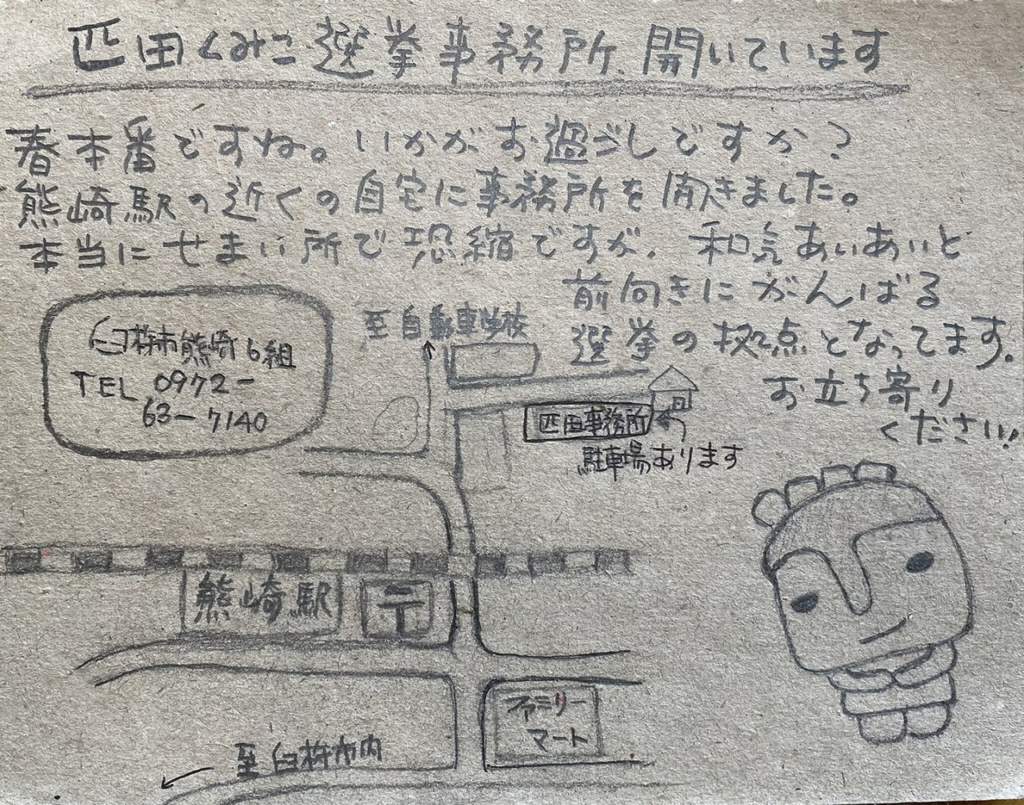 匹田くみこ選挙事務所、開いています
春本番ですね。いかがお過ごしですか？
熊崎駅の近くの自宅に事務所を開きました。
本当にせまい所で恐縮ですが、和気あいあいと
前向きにがんばる
選挙の拠点となってます。
お立ち寄り
ください！
臼杵市熊崎6組
TEL 0972-
63-7140
至自動車学校
匹田事務所
駐車場あります
熊崎駅
〒
ファミリー
マート
至臼杵市内